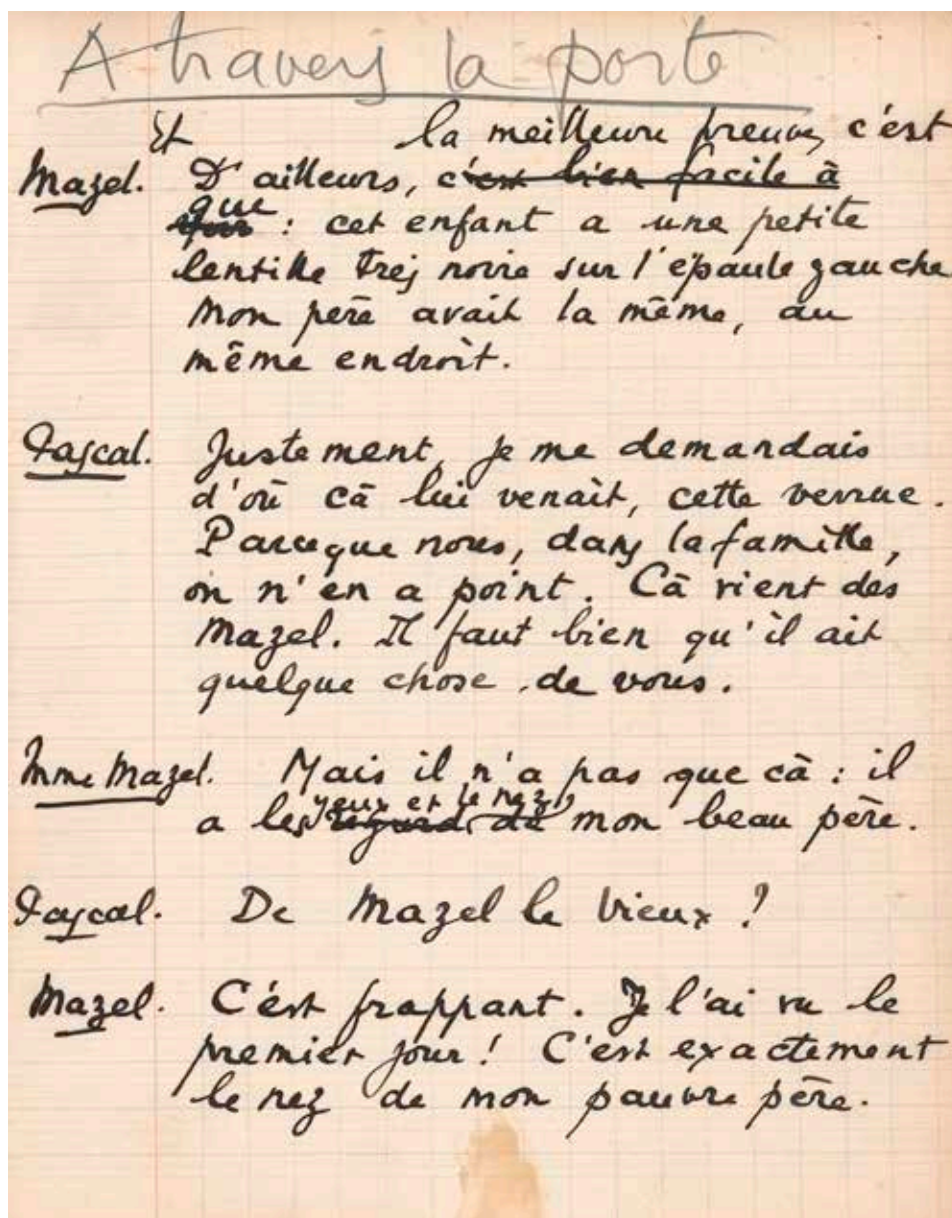 A travers la porte
Et la meilleure preuve, c'est
Mazel. D'ailleurs, c'est bien facile à
que : cet enfant a une petite
lentille très noire sur l'épaule gauche
Mon père avait la même, au
même endroit.
Pascal. Justement, je me demandais
d'où cā lui venait, cette verrue.
Parceque nous, dans la famille,
on n'en a point. Cā vient des
Mazel. Il faut bien qu'il ait
quelque chose de vous.
Mme Mazel. Mais il n'a pas que cā : il
yeux et le nez
a les regard de mon beau père.
Pascal. De Mazel le vieux ?
Mazel. C'est frappant. Je l'ai vu le
premier jour ! C'est exactement
le nez de mon pauvre père.